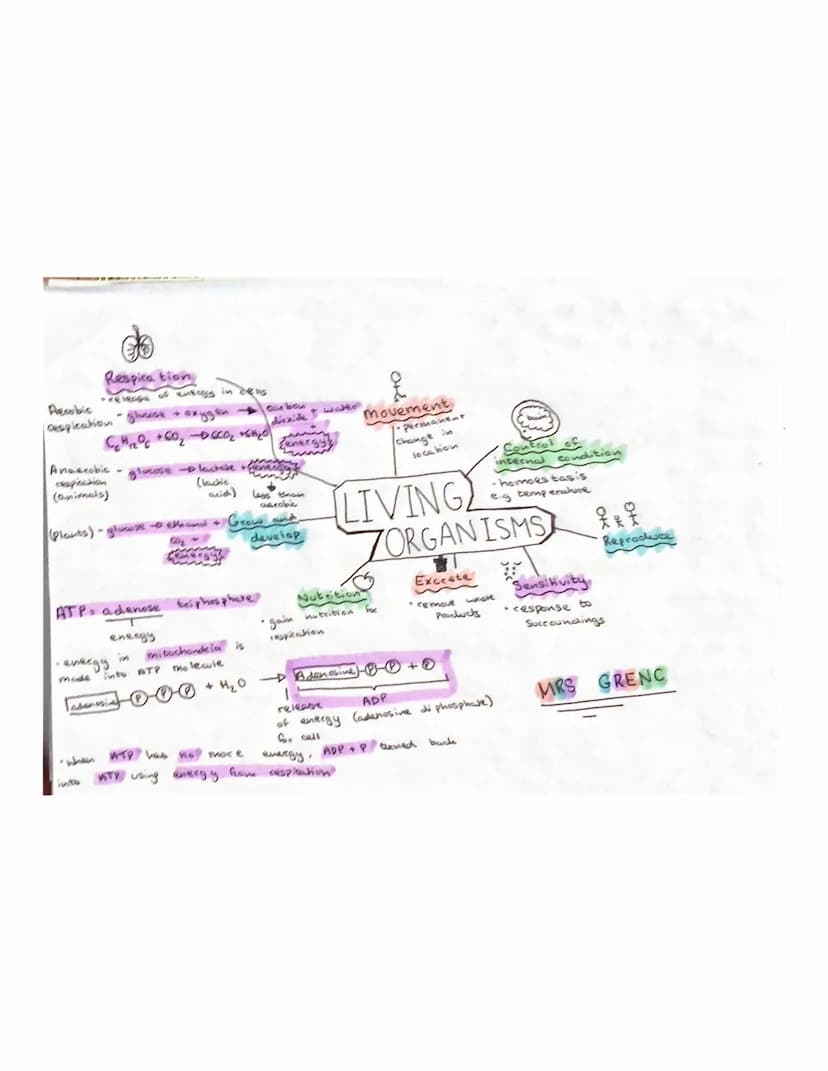 Respiration
• release of energy in cells
Aerobic respiration - glucose + oxygen → carbon dioxide + water + energy
C₆H₁₂O₆ + 6O₂ → 6CO₂ + 6H₂O
Anaerobic respiration (animals) - glucose → lactate + energy
(lactic acid)
less than aerobic
(Plants) - glucose → ethanol +
CO₂ +
energy
Grow and
develop
ATP = adenose triphosphate
energy
• energy in mitochondria is
made into ATP molecule
adenosine P P P + H₂O → Adenosine P P + P
ADP
release
of energy (adenosine diphosphate)
for cell
• when ATP has no more energy, ADP + P turned back
into ATP using energy from respiration
movement
• permanent
change in
location
brain
Control of
internal condition
• homoestasis
e.g temperature
LIVING
ORGANISMS
Reproduce
Nutrition
• gain nutrition for
respiration
Excrete
• remove waste
products
Sensitivity
• response to
surroundings
MRS GRENC